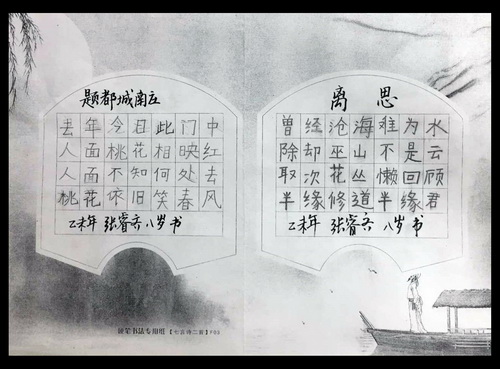 题都城南庄
去年今日此门中
人面桃花相映红
人面不知何处去
桃花依旧笑春风
乙未年 张睿 八岁 书
离思
曾经沧海难为水
除却巫山不是云
取次花丛懒回顾
半缘修道半缘君
乙未年 张睿 八岁 书
笔书法专用纸【七言诗二首】